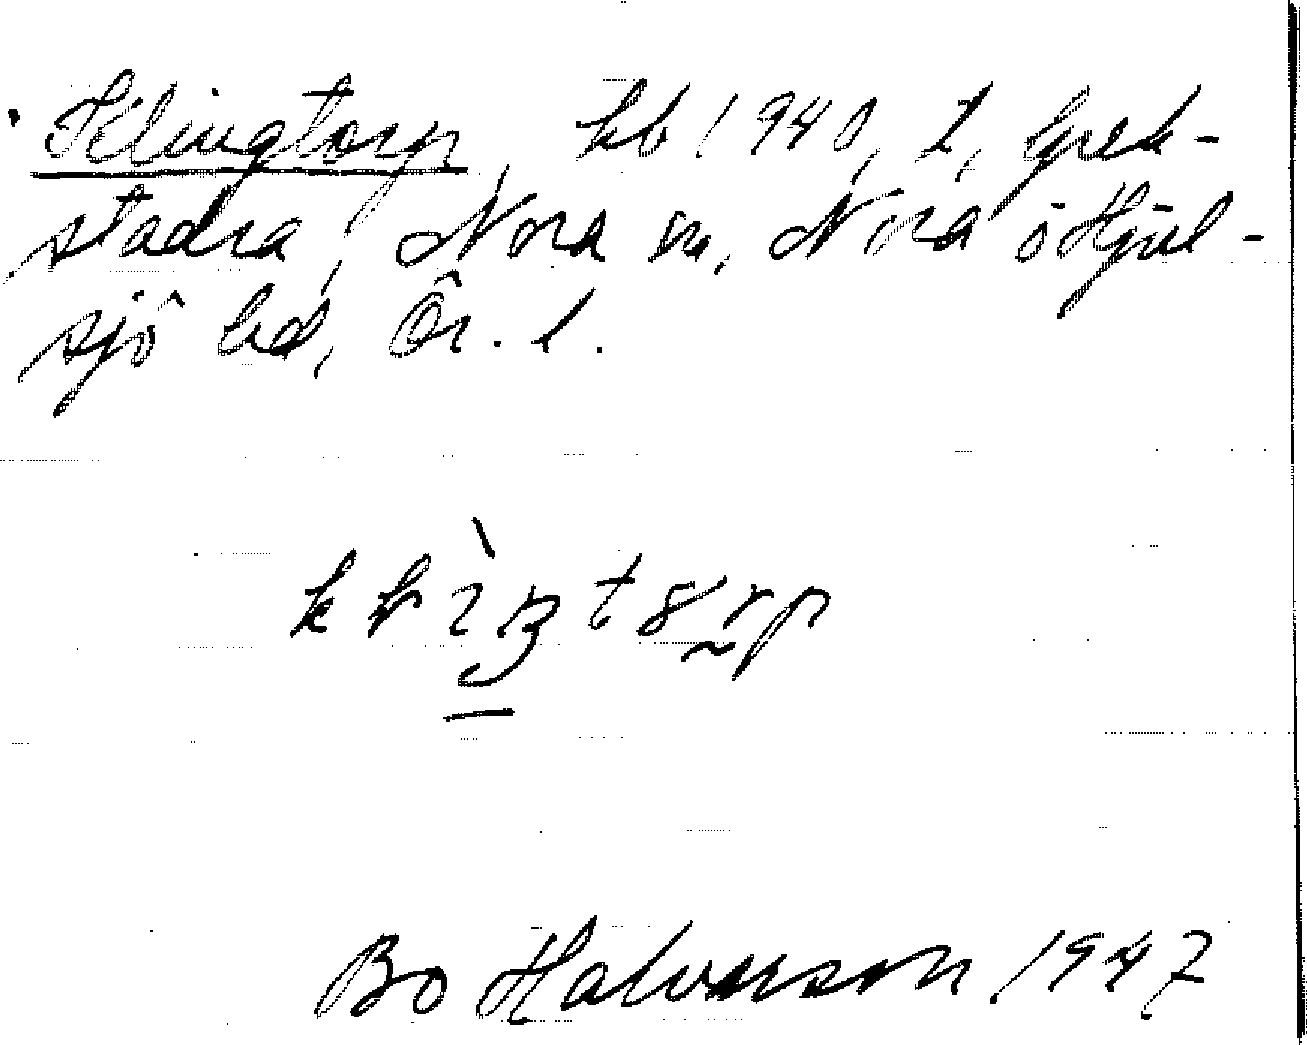 Klingtorp, kb 1940, t, Grek-
stadra, Nora sn, Nora o Hjul-
sjö bd, Ör. l.
Bo Halvarson 1947